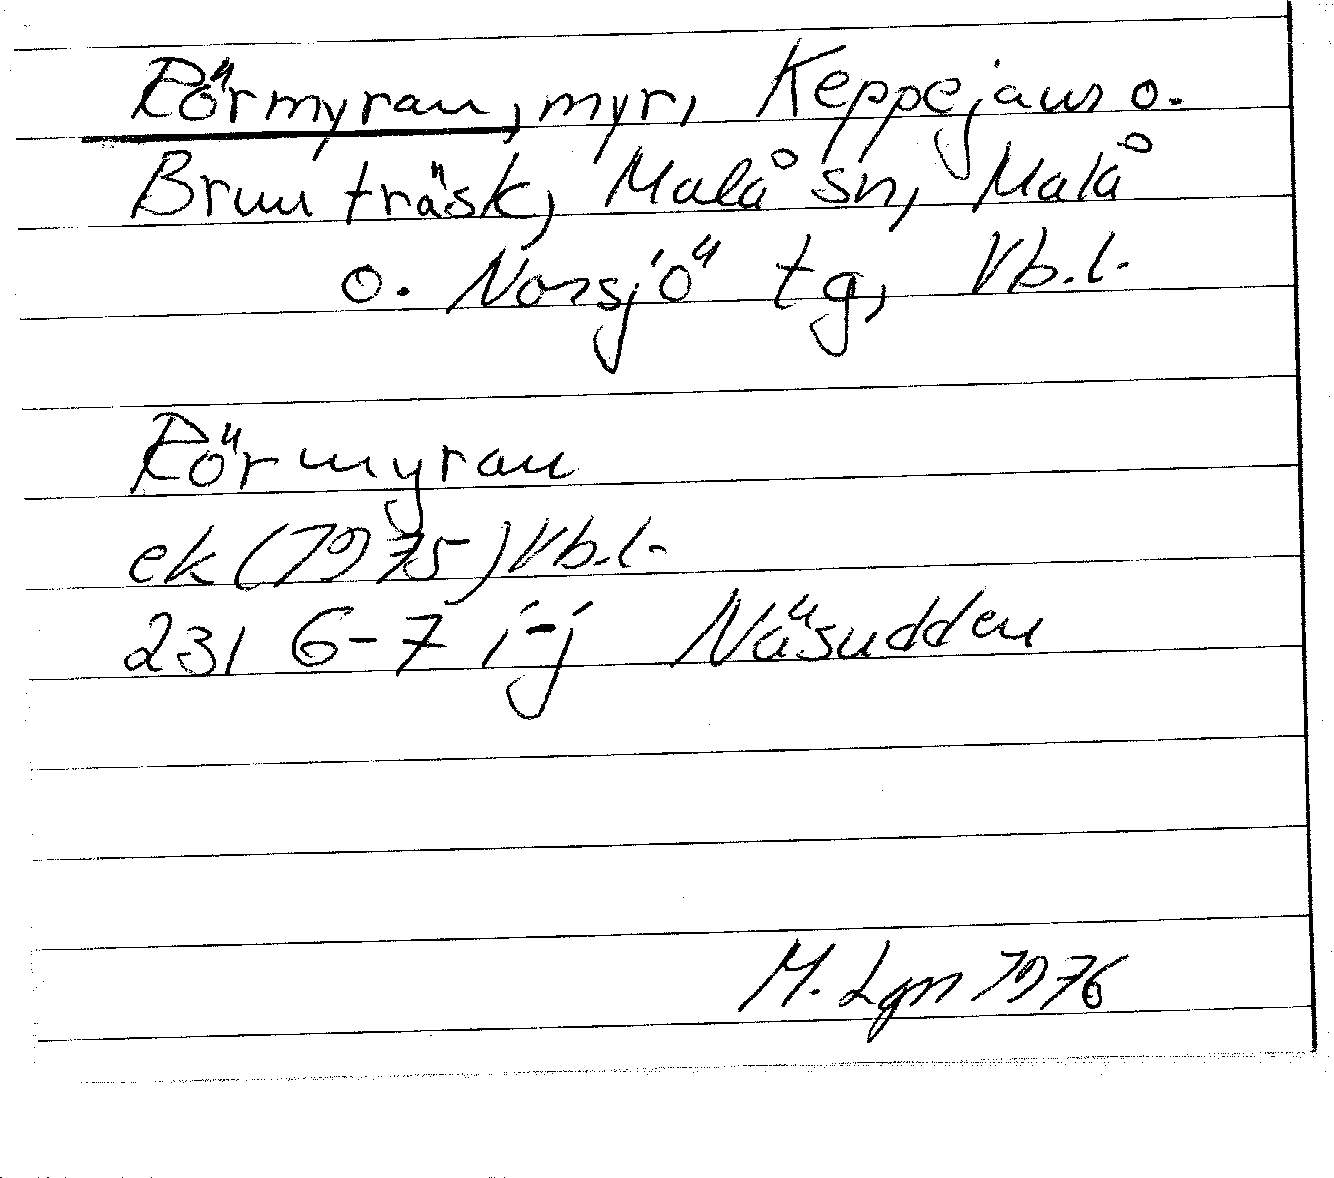 Rörmyran, myr, Keppejaur o.
Brunträsk, Malå sn, Malå
o. Norsjö tg, Vb.l.
Rörmyran
ek (1975) Vb.l.
23I 6-7 i-j Näsudden
M. Lgn 1976